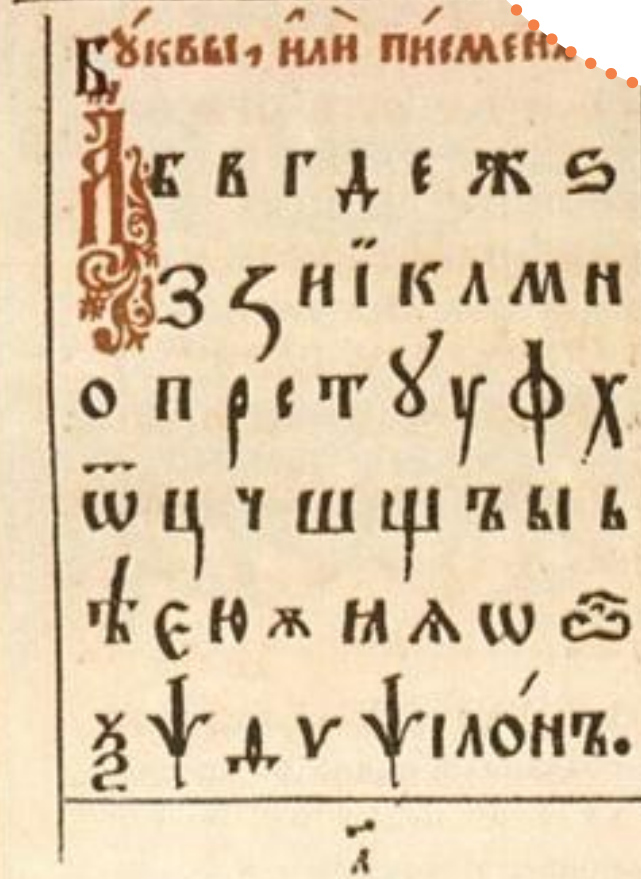 Бꙋ́квы, и҆лѝ пи́смена
А б в г д е ж ѕ
З ꙁ и ї к л м н
о п р с т ꙋ у ф х
ѿ ц ч ш щ ъ ы ь
ѣ є ю ѫ ꙗ ѧ ѡ ѽ
ѯ ѱ ѳ ѵ ѱілѡ́нъ.